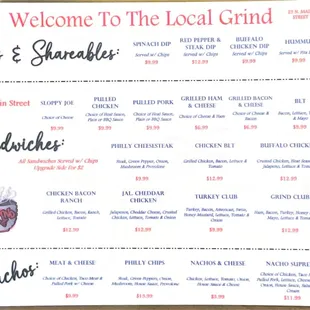 Welcome To The Local Grind
23 N. MAIN
STREET
& Shareables:
SPINACH DIP
Served w/ Chips
$9.99
RED PEPPER &
STEAK DIP
Served w/ Chips
$12.99
BUFFALO
CHICKEN DIP
Served w/ Chips
$9.99
HUMMUS
$9.99
in Street
SLOPPY JOE
Choice of Cheese
$9.99
PULLED
CHICKEN
Choice of Heat Sauce,
Plain or BBQ Sauce
$9.99
PULLED PORK
Choice of Heat Sauce,
Plain or BBQ Sauce
$9.99
GRILLED HAM
& CHEESE
Choice of Cheese & Ham
$6.99
GRILLED BACON
& CHEESE
Choice of Cheese
$6.99
BLT
Bacon, Lettuce,
& Mayo
dwiches:
All Sandwiches Served w/ Chips
Upgrade Side For $2
PHILLY CHEESESTEAK
Steak, Green Pepper, Onion,
Mushroom & Provolone
CHICKEN BLT
Grilled Chicken, Bacon, Lettuce &
Tomato
$12.99
BUFFALO CHICK
Lettuce & Tomato
CHICKEN BACON
RANCH
Grilled Chicken, Bacon, Ranch,
Lettuce, Tomato
$12.99
JAL. CHEDDAR
CHICKEN
Jalapenos, Cheddar Cheese, Crusted
Chicken, Lettuce, Tomato & Onion
$12.99
TURKEY CLUB
Turkey, Bacon, American, Swiss,
Honey Mustard, Lettuce, Tomato &
Onion
GRIND CLUB
Ham, Bacon, Turkey,
$12.99
achos:
MEAT & CHEESE
Choice of Chicken, Taco Meat &
Pulled Pork w/ Cheese
$9.99
PHILLY CHIPS
Steak, Green Peppers, Onion,
Mushrooms, House Sauce, Provolone
$13.99
NACHOS & CHEESE
Chicken, Lettuce, Tomato, Onion,
House Sauce & Cheese
NACHO SUPRE
Choice of Chicken, Taco
Pulled Pork, Lettuce,
Onion
$11.99